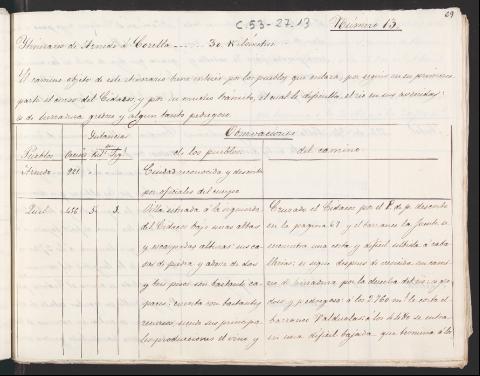 29
C. 53-27.13
Número 13.
Itinerario de Arnedo á Corella 30 Kilómetros
El camino objeto de este itinerario tiene interés por los pueblos que enlaza, por seguir en su primera
parte el curso del Cidacos, y por su mucho tránsito, el cual le dificulta el rio en sus avenidas:
es de herradura y algun tanto pedregoso
Distancias
Observaciones
Pueblos
Vecinos
de los pueblos
del camino
Arnedo
921
Ciudad reconocida y descrita
por oficiales del cuerpo
Quel
456
5
Villa situada á la izquierda
del Cidacos bajo unas altas
y escarpadas alturas: sus ca-
sas de piedra y adobe de dos
y tres pisos son bastante ca-
paces; cuenta con bastantes
recursos siendo sus principa-
les producciones el vino y
Cruzado el Cidacos por el P. de p. descrito
en la pagina 67 y el barranco la fuente se
encuentra una corta y dificil subida á caba-
llerias: se sigue despues de vencida un cami-
no de herradura por la derecha del rio
doso y pedregoso: á los 2.760 m. le corta el
barranco Valduelas: á los 4.480 se entra
en una dificil bajada que termina á los